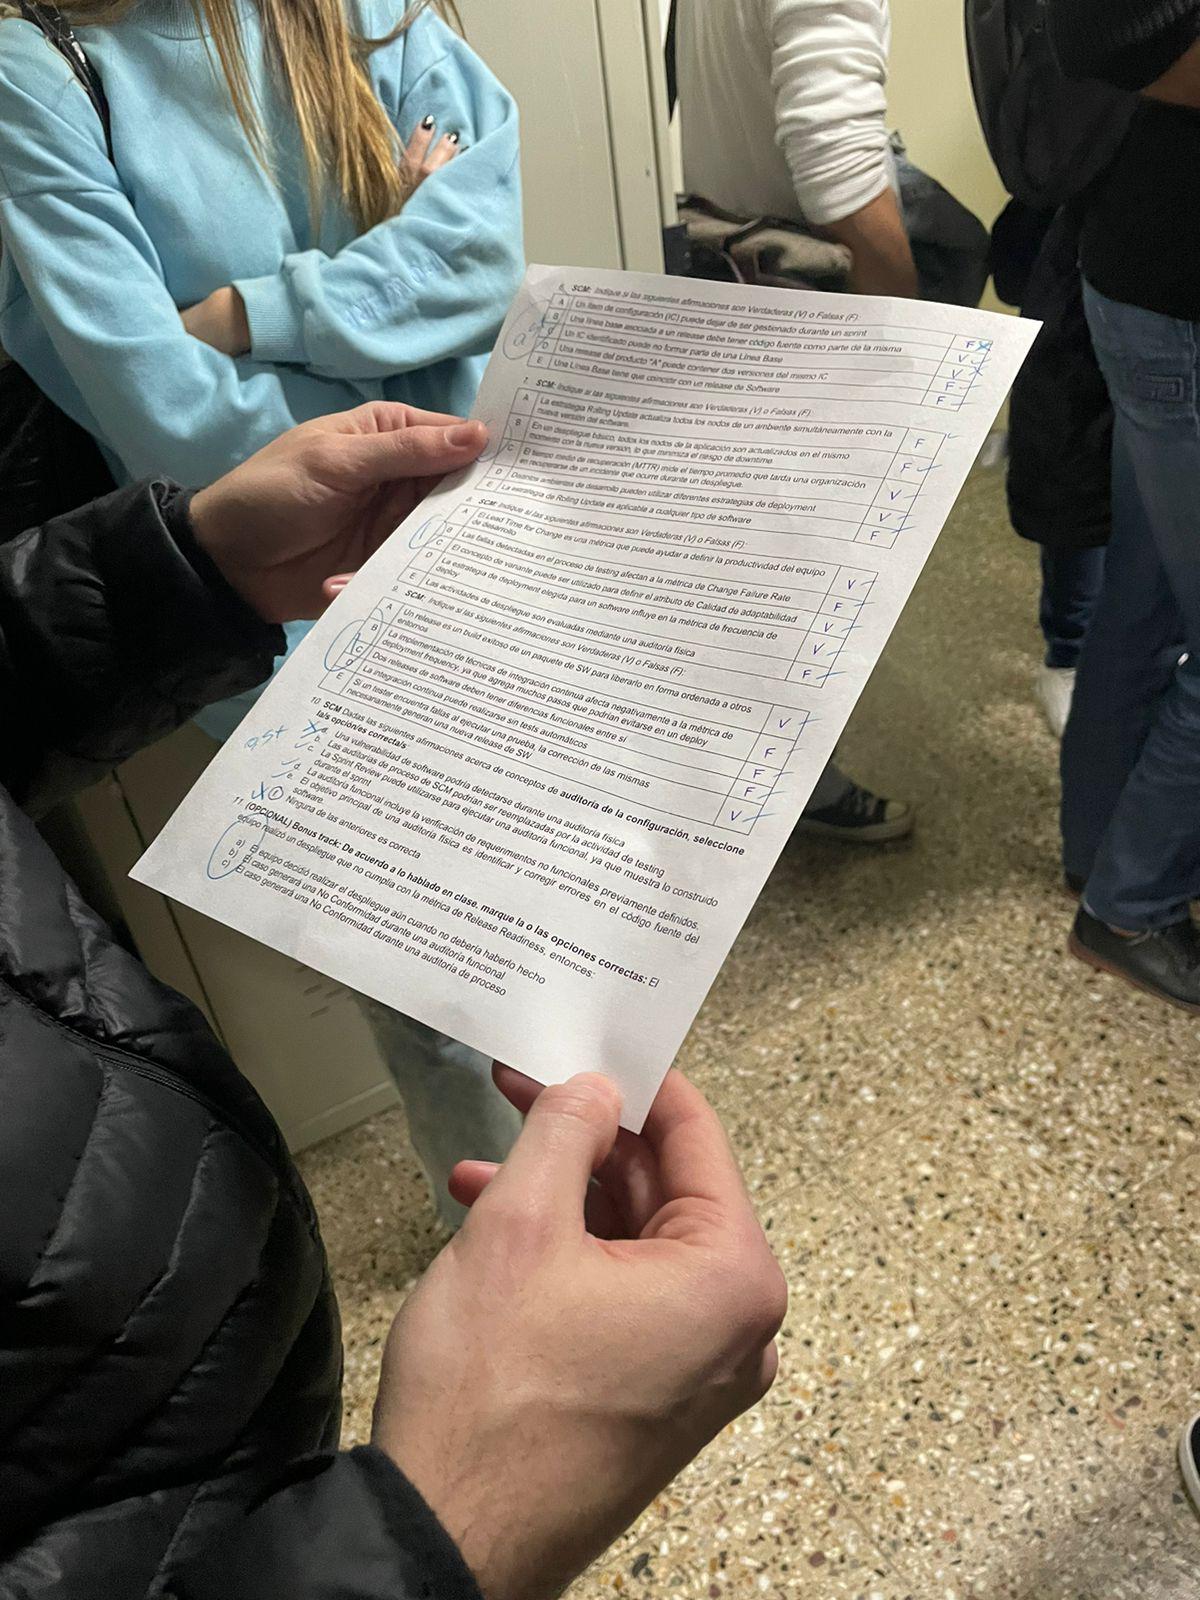 6. SCM: Indique si las siguientes afirmaciones son Verdaderas (V) o Falsas (F):
A Un ítem de configuración (IC) puede dejar de ser gestionado durante un sprint F
B Una línea base asociada a un release debe tener código fuente como parte de la misma V
C Un IC identificado puede no formar parte de una Línea Base V
D Una release del producto "A" puede contener dos versiones del mismo IC F
E Una Línea Base tiene que coincidir con un release de Software F
7. SCM: Indique si las siguientes afirmaciones son Verdaderas (V) o Falsas (F):
A La estrategia Rolling Update actualiza todos los nodos de un ambiente simultáneamente con la
nueva versión del software. F
B En un despliegue básico, todos los nodos de la aplicación son actualizados en el mismo
momento con la nueva versión, lo que minimiza el riesgo de downtime. F
C El tiempo medio de recuperación (MTTR) mide el tiempo promedio que tarda una organización
en recuperarse de un incidente que ocurre durante un despliegue. V
D Distintos ambientes de desarrollo pueden utilizar diferentes estrategias de deployment V
E La estrategia de Rolling Update es aplicable a cualquier tipo de software F
8. SCM: Indique si las siguientes afirmaciones son Verdaderas (V) o Falsas (F):
A El Lead Time for Change es una métrica que puede ayudar a definir la productividad del equipo
de desarrollo V
B Las fallas detectadas en el proceso de testing afectan a la métrica de Change Failure Rate F
C El concepto de variante puede ser utilizado para definir el atributo de Calidad de adaptabilidad V
D La estrategia de deployment elegida para un software influye en la métrica de frecuencia de
deploy V
E Las actividades de despliegue son evaluadas mediante una auditoría física F
9. SCM: Indique si las siguientes afirmaciones son Verdaderas (V) o Falsas (F):
A Un release es un build exitoso de un paquete de SW para liberarlo en forma ordenada a otros
entornos V
B La implementación de técnicas de integración continua afecta negativamente a la métrica de
deployment frequency, ya que agrega muchos pasos que podrían evitarse en un deploy F
C Dos releases de software deben tener diferencias funcionales entre sí F
D La integración continua puede realizarse sin tests automáticos F
E Si un tester encuentra fallas al ejecutar una prueba, la corrección de las mismas
necesariamente generan una nueva release de SW V
10. SCM Dadas las siguientes afirmaciones acerca de conceptos de auditoría de la configuración, seleccione
la/s opción/es correcta/s:
a. Una vulnerabilidad de software podría detectarse durante una auditoría física
b. Las auditorías de proceso de SCM podrían ser reemplazadas por la actividad de testing
c. La Sprint Review puede utilizarse para ejecutar una auditoría funcional, ya que muestra lo construido
durante el sprint
d. La auditoría funcional incluye la verificación de requerimientos no funcionales previamente definidos.
e. El objetivo principal de una auditoría física es identificar y corregir errores en el código fuente del
software.
f. Ninguna de las anteriores es correcta
11. (OPCIONAL) Bonus track: De acuerdo a lo hablado en clase, marque la o las opciones correctas: El
equipo realizó un despliegue que no cumplía con la métrica de Release Readiness, entonces:
a) El equipo decidió realizar el despliegue aún cuando no debería haberlo hecho
b) El caso generará una No Conformidad durante una auditoría funcional
c) El caso generará una No Conformidad durante una auditoría de proceso